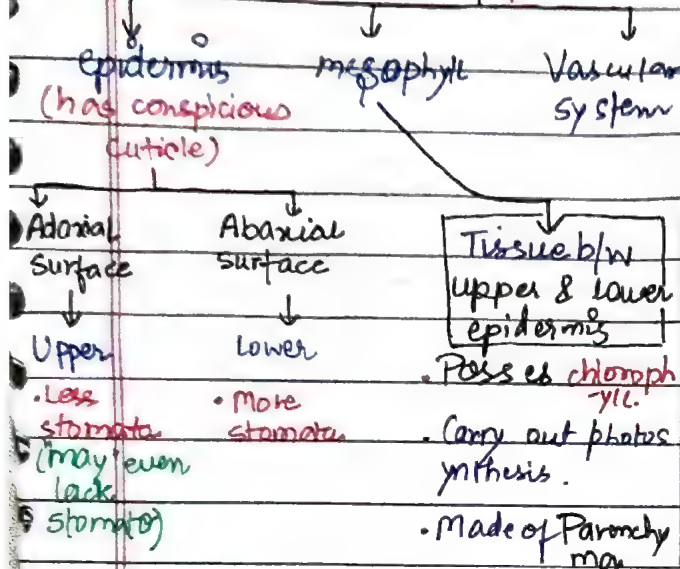 epidermis
(has conspicious
cuticle)
Adaxial
surface
Upper
.Less
stomata
(may even
lack
stomata)
Abaxial
surface
Lower
• More
stomata
mesophyll
Tissue b/w
upper & lower
epidermis
. Posses chloroph
-yll.
. Carry out photos
ynthesis.
. Made of Parenchy
ma
Vascular
system